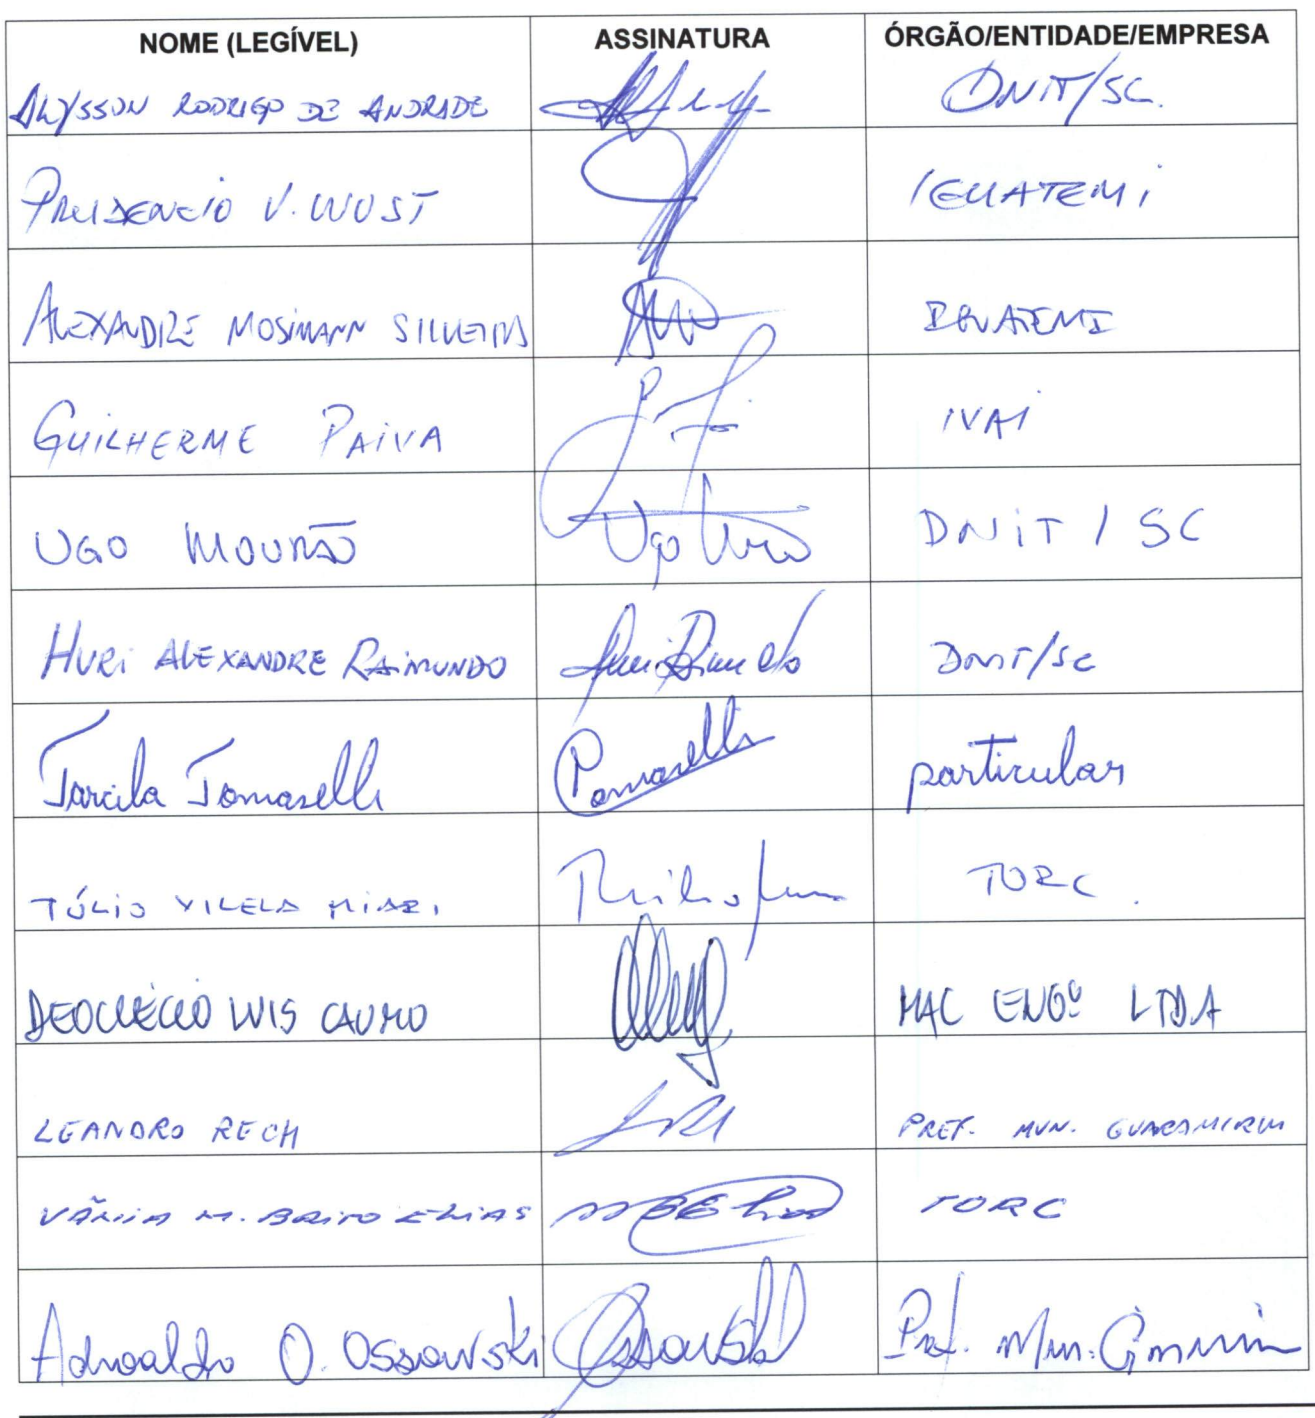 NOME (LEGÍVEL) ASSINATURA ÓRGÃO/ENTIDADE/EMPRESA
ALYSSON RODRIGO DE ANDRADE DNIT/SC.
PRUDENCIO V. WUST IGUATEMI
ALEXANDRE MOSIMANN SILVEIRA IGUATEMI
GUILHERME PAIVA IVAI
UGO MOURÃO Ugo DNIT / SC
HURI ALEXANDRE RAIMUNDO DNIT/SC
Tarcila Tomaselli Tomaselli particular
TÚLIO VILELA TORC.
DEOCLÉCIO LUIS CAUMO MAC ENGª LTDA
LEANDRO RECH PREF. MUN. GUARAMIRIM
VÂNIA M. BRITO ELIAS TORC
O. Ossowski Ossowski Pref. Mun.